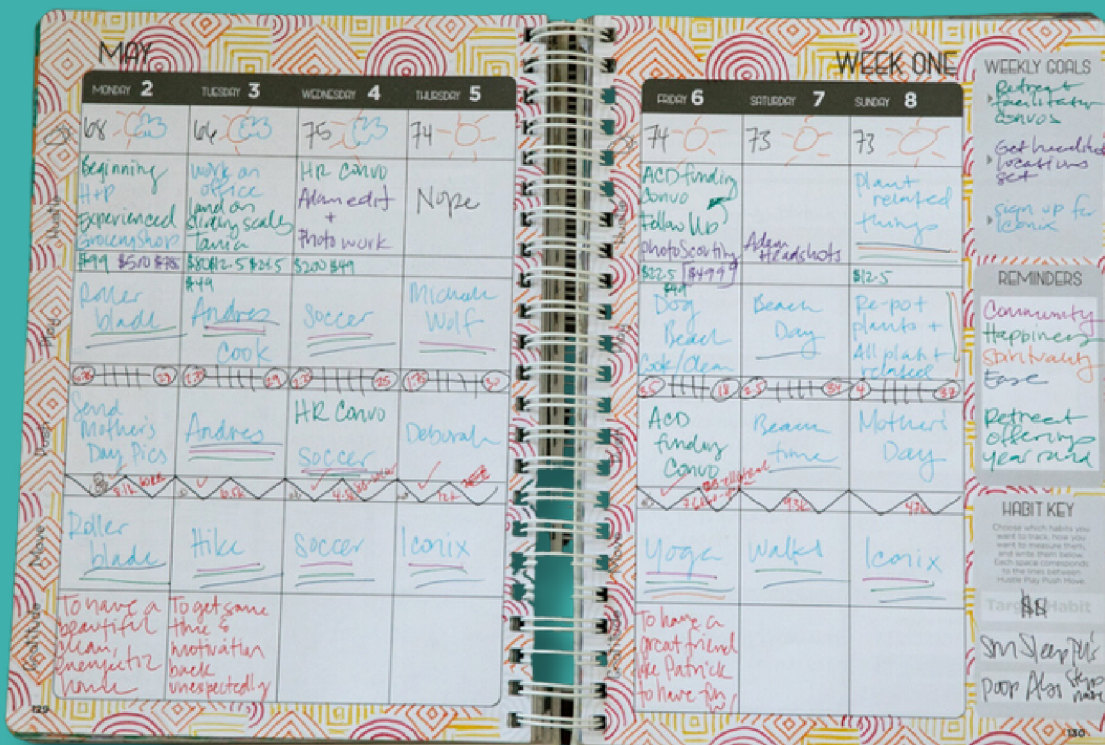 MAY
MONDAY 2
TUESDAY 3
WEDNESDAY 4
THURSDAY 5
68
66
75
74
Beginning
H+P
Experienced
Grocery Shop
work on
office
land on
sliding scales
Tania
HR Convo
Adam edit
+
Photo work
Nope
$99 $500 $75
$200 $49
$49
Roller
blade
Andres
Cook
Soccer
Wolf
Send
Mother's
Day Pics
Andres
HR Convo
Soccer
Deborah
8.1k
6.5k
12k
Move
Roller
blade
Hike
Soccer
Iconix
To have a
beautiful
clean,
home
To get some
time &
motivation
back
unexpectedly
129
WEEK ONE
FRIDAY 6
SATURDAY 7
SUNDAY 8
74
73
73
ACD funding
Convo
Follow Up
Photo Scouting
Adam
Headshots
Plant
related
things
$22.5 $4999
$12.5
$49
Dog
Beach
Cook/Clean
Beach
Day
Re-pot
plants +
All plant
related
ACD
funding
Convo
Beach
time
Mother's
Day
Yoga
Walks
Iconix
To have a
great friend
like Patrick
to have fun
WEEKLY GOALS
Retreat
facilitator
convos
Get headshot
locations
set
sign up for
Iconix
REMINDERS
Community
Happiness
Spirituality
Ease
Retreat
offerings
year round
HABIT KEY
Choose which habits you
want to track, how you
want to measure them,
and write them below.
Each space corresponds
to the ones between
Hustle Play Push Move.
Target Habit
Sleep
Poop Abs
130